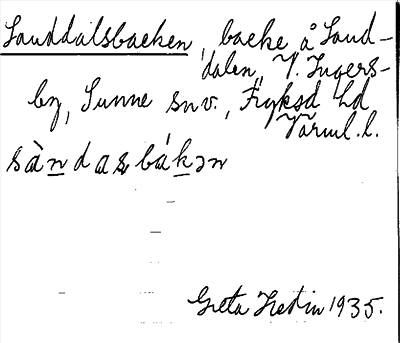 Sanddalsbacken, backe å Sand-
dalen, V. Ingers-
by, Sunne snv., Fryksd. hd
Värml. l.
sàndasbákən
Greta Hedin 1935.